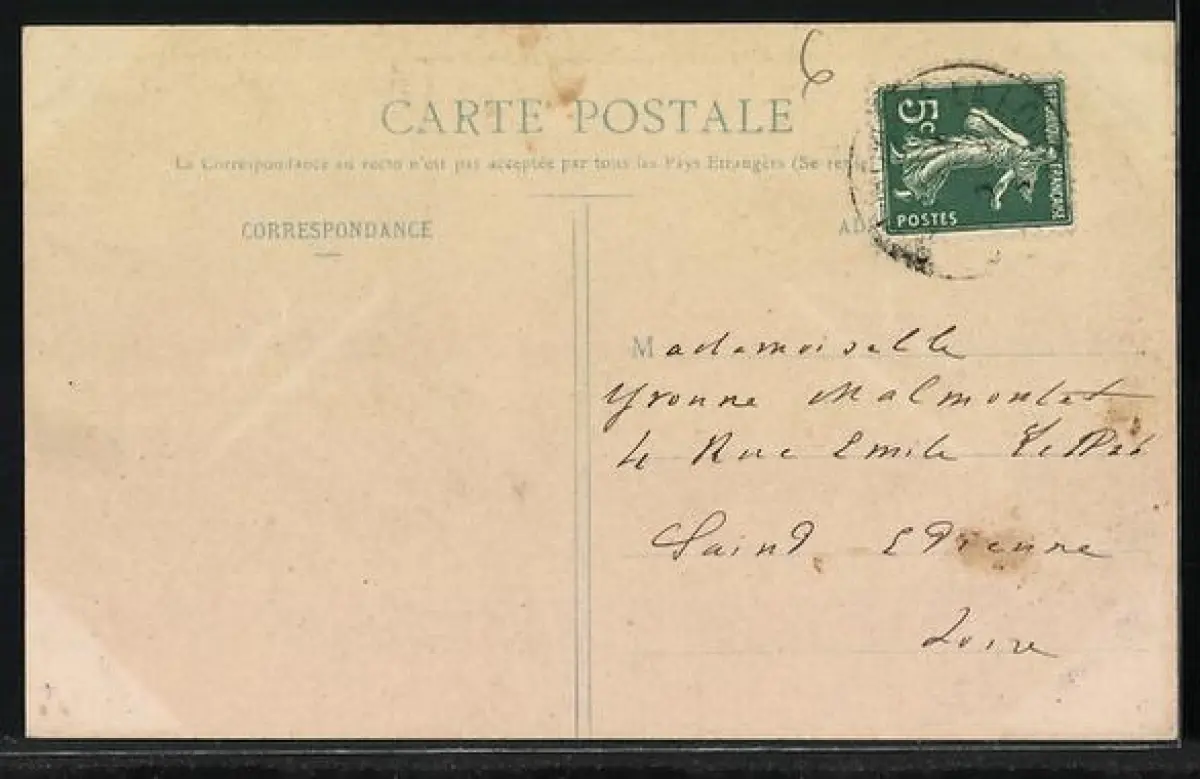 6
CARTE POSTALE
La Correspondance au recto n'est pas acceptée par tous les Pays Etrangers (Se rense
CORRESPONDANCE
AD
5c
POSTES
FRANÇAISE
Mademoiselle
Yvonne Malmontet
4 Rue Emile
Saint Etienne
Loire